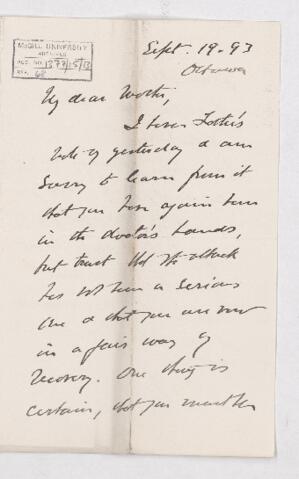 McGILL UNIVERSITY
ARCHIVES
ACC. NO. 1378/5/13
REF. 68
Sept. 19. 93
Ottawa
My dear Mother,
I have Lottie's
note of yesterday & am
sorry to learn from it
that you have again been
in the doctor's hands,
but trust that the attack
has not been a serious
one & that you are now
in a fair way of
recovery. One thing is
certain, that you must be